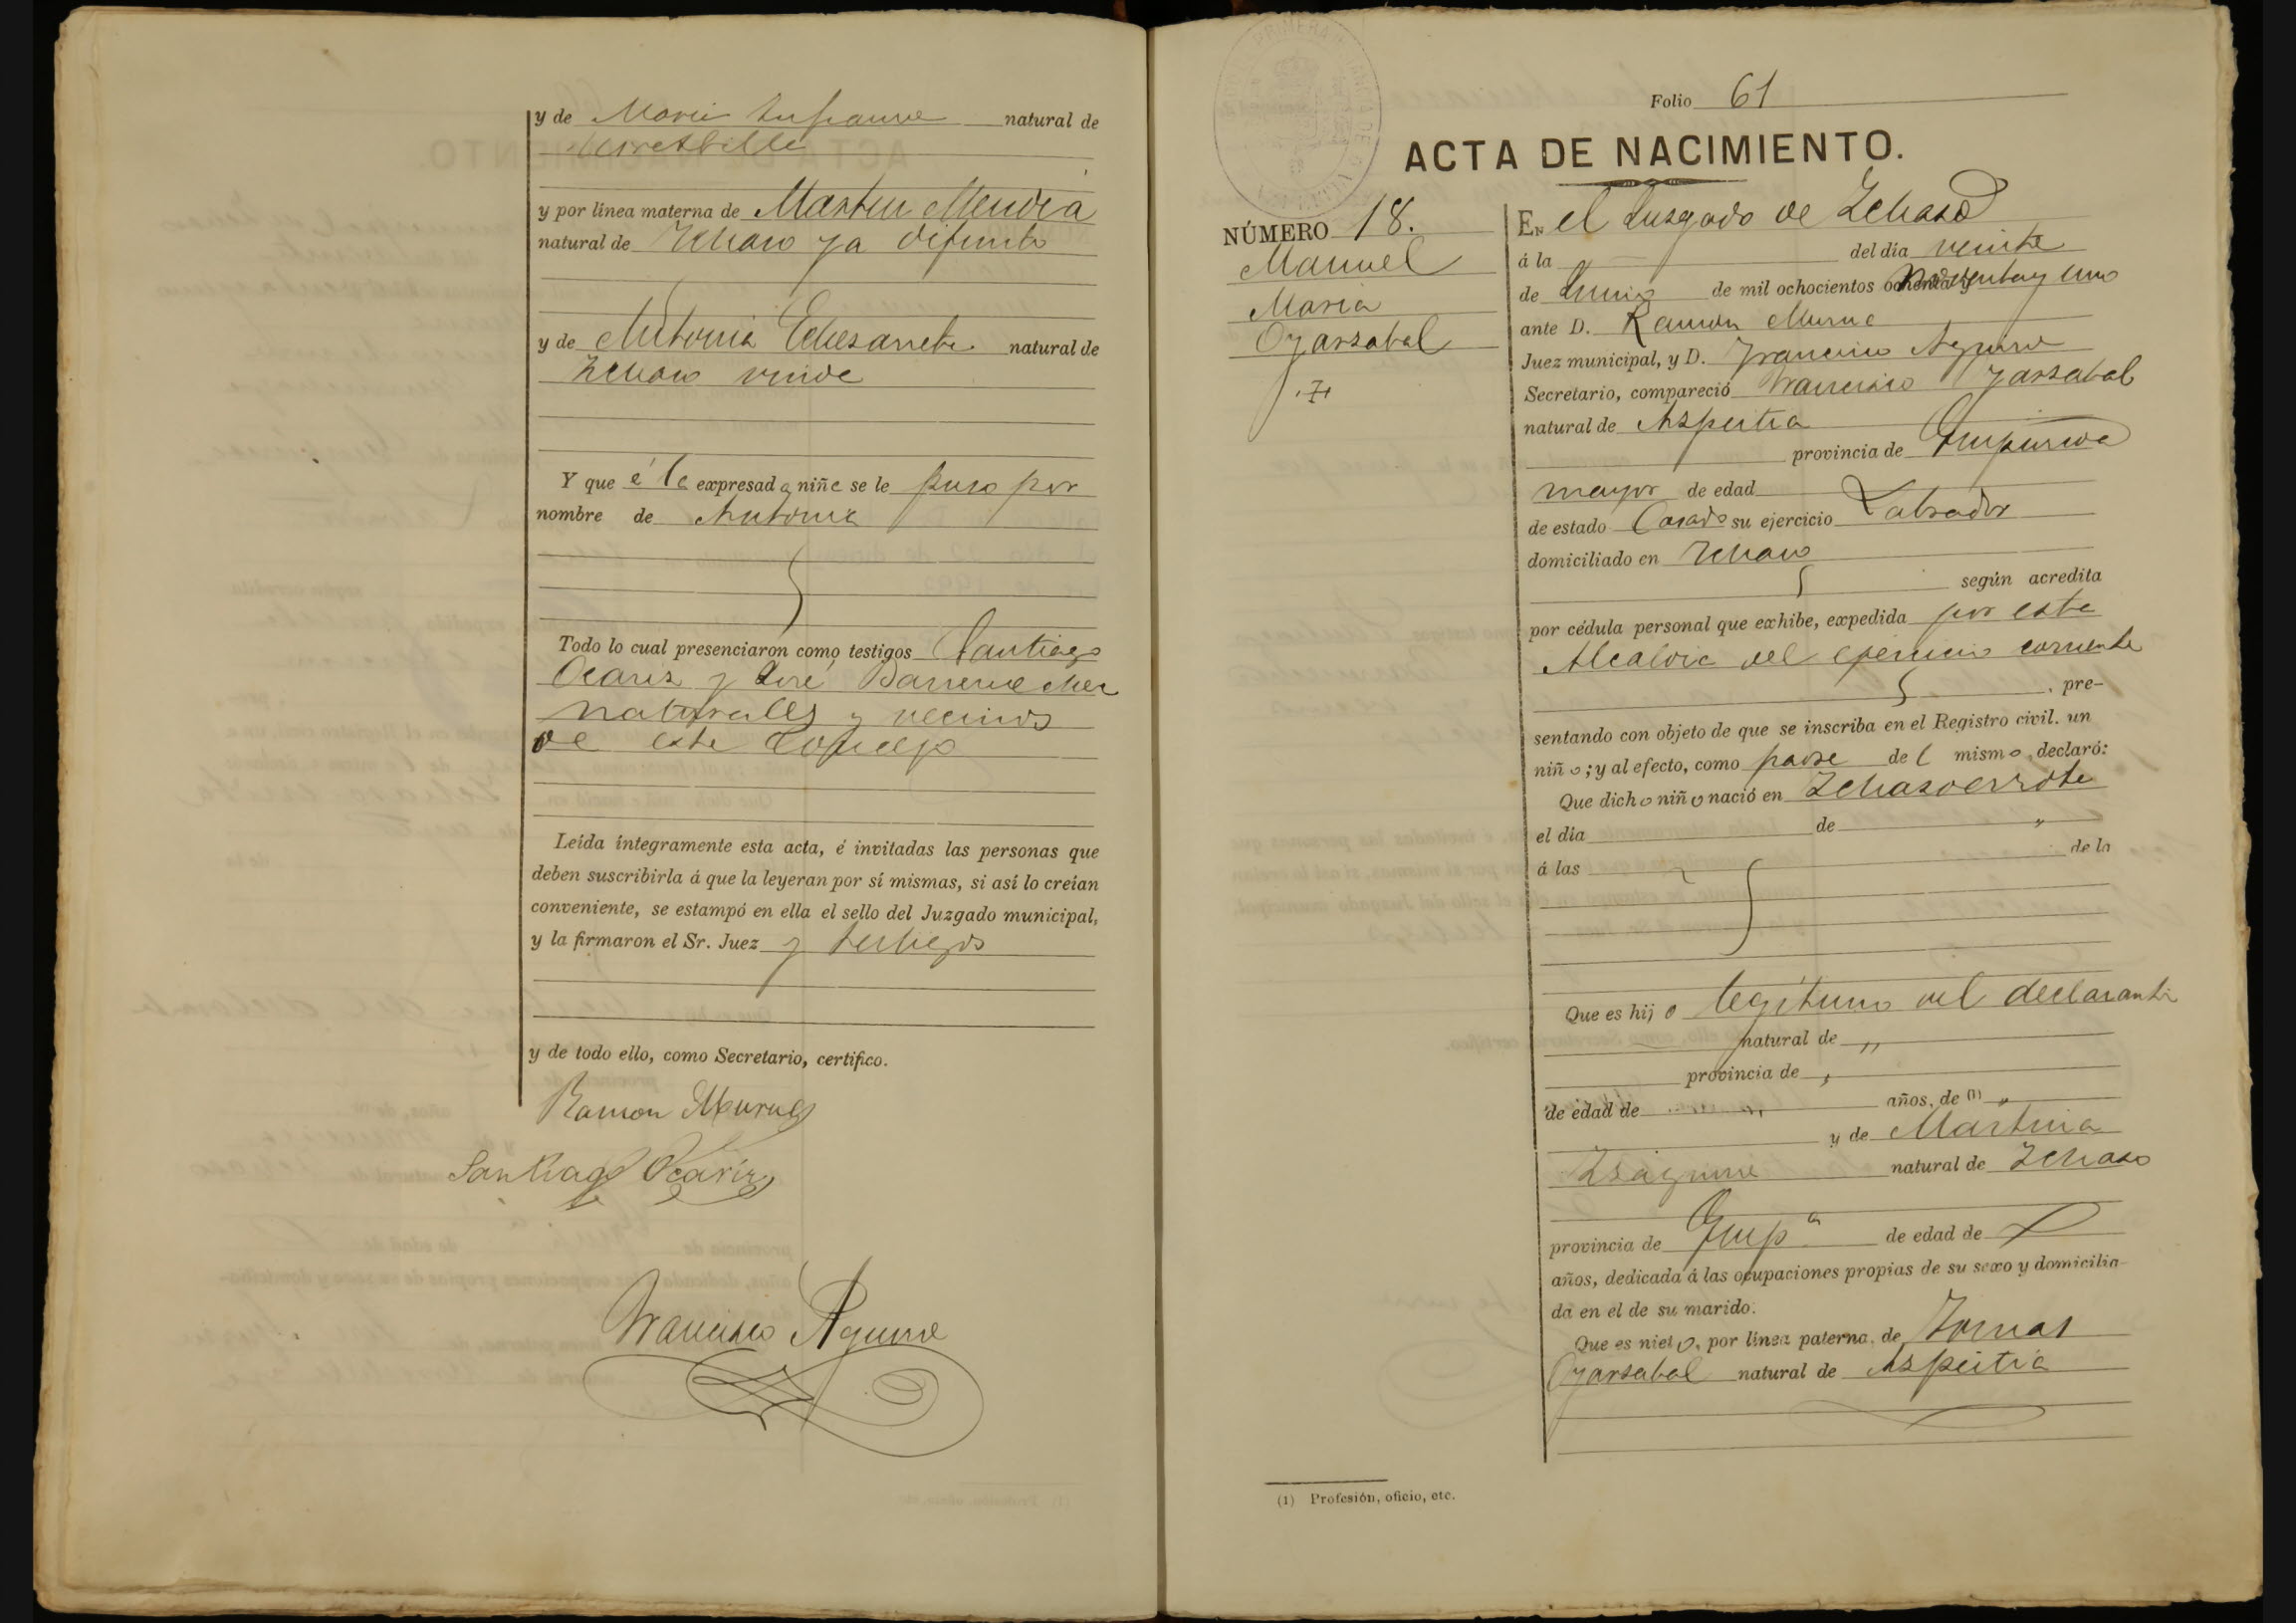 y de Maria natural de
y por línea materna de Martin Mendia
natural de Ychaso ya difunto
y de Antonia Echesarreta natural de
Ychaso viuda
Y que é la expresada niña se le puso por
nombre de Antonia
Todo lo cual presenciaron como testigos Santiago
Ocariz y José Barrenechea
naturales y vecinos
de este Concejo
Leída íntegramente esta acta, é invitadas las personas que
deben suscribirla á que la leyeran por sí mismas, si así lo creían
conveniente, se estampó en ella el sello del Juzgado municipal,
y la firmaron el Sr. Juez y testigos
y de todo ello, como Secretario, certifico.
Ramon Murua
Santiago Ocariz
Francisco Aguirre
Folio 61
ACTA DE NACIMIENTO.
NÚMERO 18.
Manuel
Maria
Oyarzabal
En el Juzgado de Ychaso
á la del día veinte
de Junio de mil ochocientos noventa y uno
ante D. Ramon Murua
Juez municipal, y D. Francisco Aguirre
Secretario, compareció Francisco Oyarzabal
natural de Aspeitia
provincia de Guipuzcoa
mayor de edad
de estado Casado su ejercicio Labrador
domiciliado en Ychaso
según acredita
por cédula personal que exhibe, expedida por esta
Alcaldia del ejercicio corriente
, pre-
sentando con objeto de que se inscriba en el Registro civil. un
niño; y al efecto, como padre del mismo, declaró:
Que dicho niño nació en Ychasoerrota
el día de "
á las de la
Que es hijo legitimo del declarante
natural de "
provincia de "
de edad de " años, de (1) "
y de Martina
Izaguirre natural de Ychaso
provincia de Guipª de edad de
años, dedicada á las ocupaciones propias de su sexo y domicilia-
da en el de su marido.
Que es nieto, por línea paterna, de Tomas
Oyarzabal natural de Aspeitia
(1) Profesión, oficio, etc.